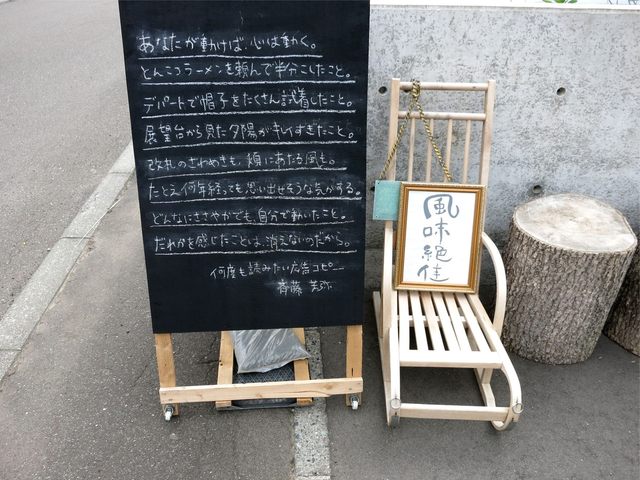 あなたが動けば、心は動く。
とんこつラーメンを頼んで半分こしたこと。
デパートで帽子をたくさん試着したこと。
展望台から見た夕陽がキレイすぎたこと。
改札のざわめきも、頬にあたる風も。
たとえ何年経っても思い出せそうな気がする。
どんなにささやかでも、自分で動いたこと。
だれかを感じたことは、消えないのだから。
何度も読みたい広告コピー
斉藤
風味絶佳